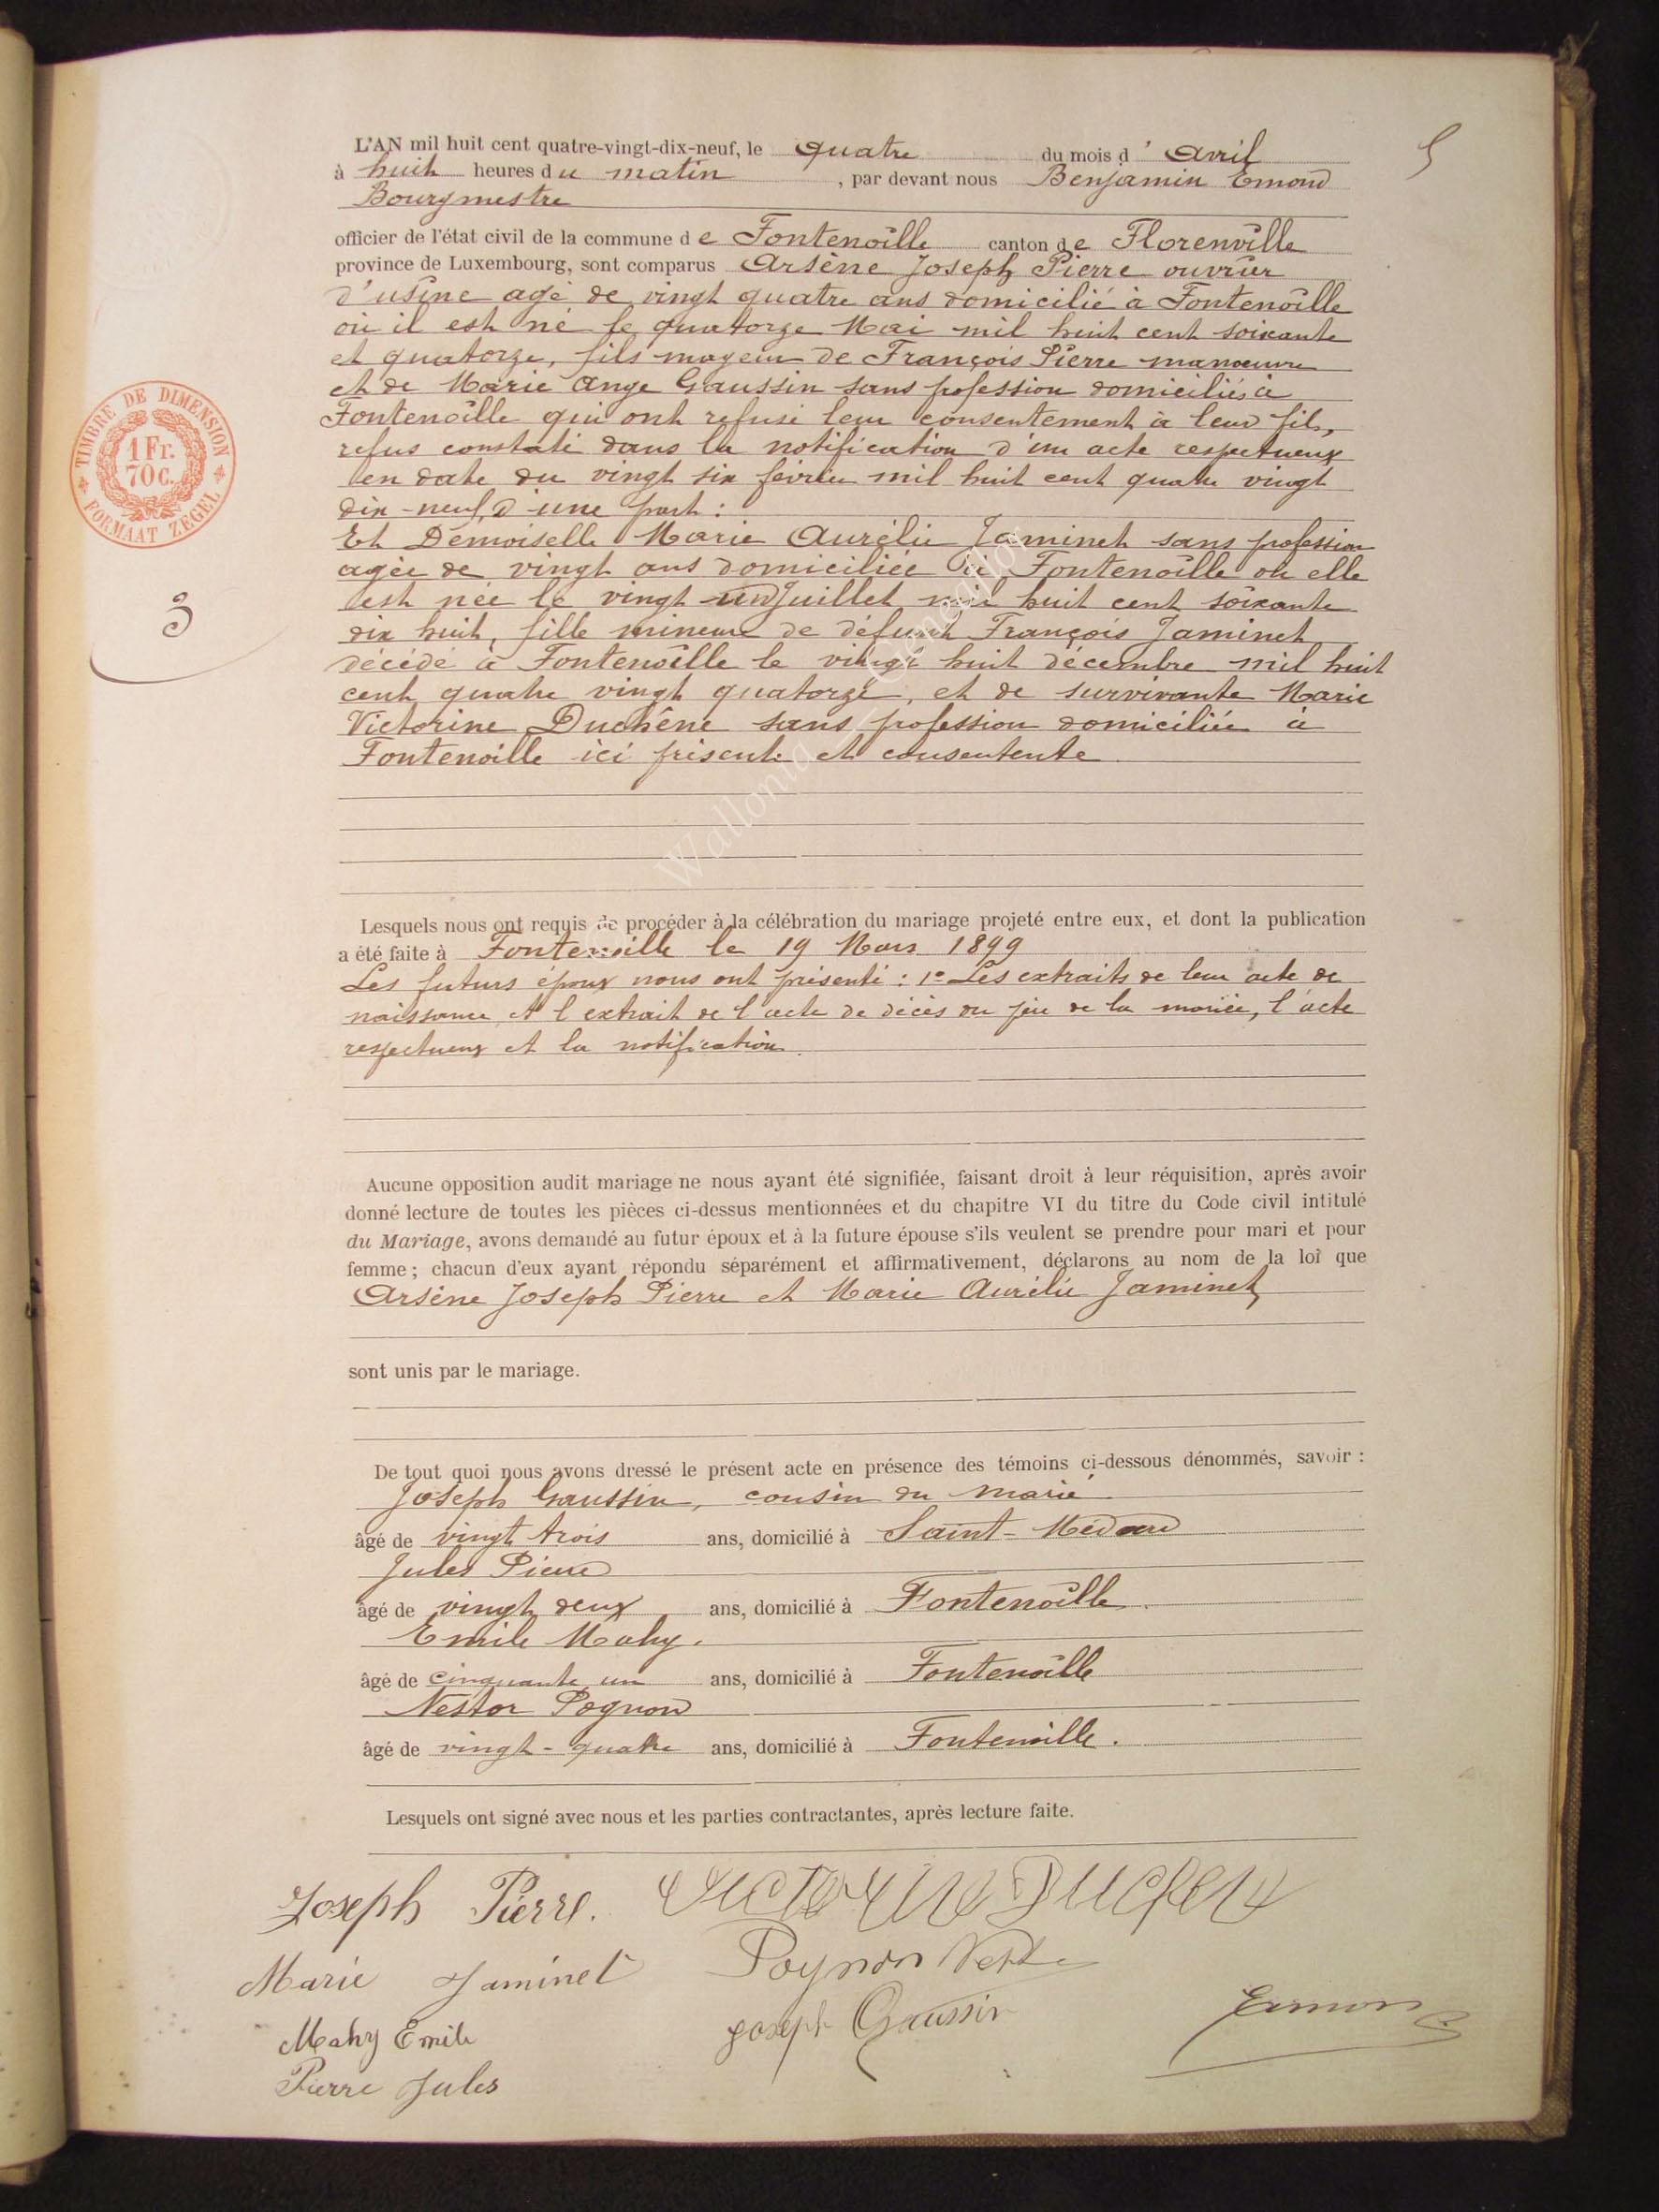 5
L'AN mil huit cent quatre-vingt-dix-neuf, le quatre du mois d' Avril
à huit heures du matin, par devant nous Benjamin Emond
Bourgmestre
officier de l'état civil de la commune de Fontenoille canton de Florenville
province de Luxembourg, sont comparus Arsène Joseph Pierre ouvrier
d'usine agé de vingt quatre ans domicilié à Fontenoille
où il est né le quatorze Mai mil huit cent soixante
et quatorze, fils mageur de François Pierre manœuvre
et de Marie Ange Gaussin sans profession domiciliés à
Fontenoille qui ont refusé leur consentement à leur fils,
refus constaté dans la notification d'un acte respectueux
en date du vingt six février mil huit cent quatre vingt
dix-neuf, d'une part :
Et Demoiselle Marie Aurélie Jaminet sans profession
agée de vingt ans domiciliée à Fontenoille où elle
est née le vingt un Juillet mil huit cent soixante
dix huit, fille mineure de défunt François Jaminet
décédé à Fontenoille le vingt huit décembre mil huit
cent quatre vingt quatorze, et de survivante Marie
Victorine Duchêne sans profession domiciliée à
Fontenoille ici présente et consentente
TIMBRE DE DIMENSION
1 Fr.
70 C.
FORMAAT ZEGEL
3
Lesquels nous ont requis de procéder à la célébration du mariage projeté entre eux, et dont la publication
a été faite à Fontenoille le 19 Mars 1899
Les futurs époux nous ont présenté : 1° Les extraits de leur acte de
naissance et l'extrait de l'acte de décès du père de la mariée, l'acte
respectueux et la notification.
Aucune opposition audit mariage ne nous ayant été signifiée, faisant droit à leur réquisition, après avoir
donné lecture de toutes les pièces ci-dessus mentionnées et du chapitre VI du titre du Code civil intitulé
du Mariage, avons demandé au futur époux et à la future épouse s'ils veulent se prendre pour mari et pour
femme ; chacun d'eux ayant répondu séparément et affirmativement, déclarons au nom de la loi que
Arsène Joseph Pierre et Marie Aurélie Jaminet,
sont unis par le mariage.
De tout quoi nous avons dressé le présent acte en présence des témoins ci-dessous dénommés, savoir :
Joseph Gaussin, cousin du marié
âgé de vingt trois ans, domicilié à Saint-Médard
Jules Pierre
âgé de vingt deux ans, domicilié à Fontenoille.
Emile Mahy.
âgé de cinquante un ans, domicilié à Fontenoille
Nestor Pognon
âgé de vingt-quatre ans, domicilié à Fontenoille.
Lesquels ont signé avec nous et les parties contractantes, après lecture faite.
Joseph Pierre. Victorine Duchene
Marie Jaminet Pognon
Mahy Emile Joseph Gaussin Emond
Pierre Jules
Wallonia - Généalogie